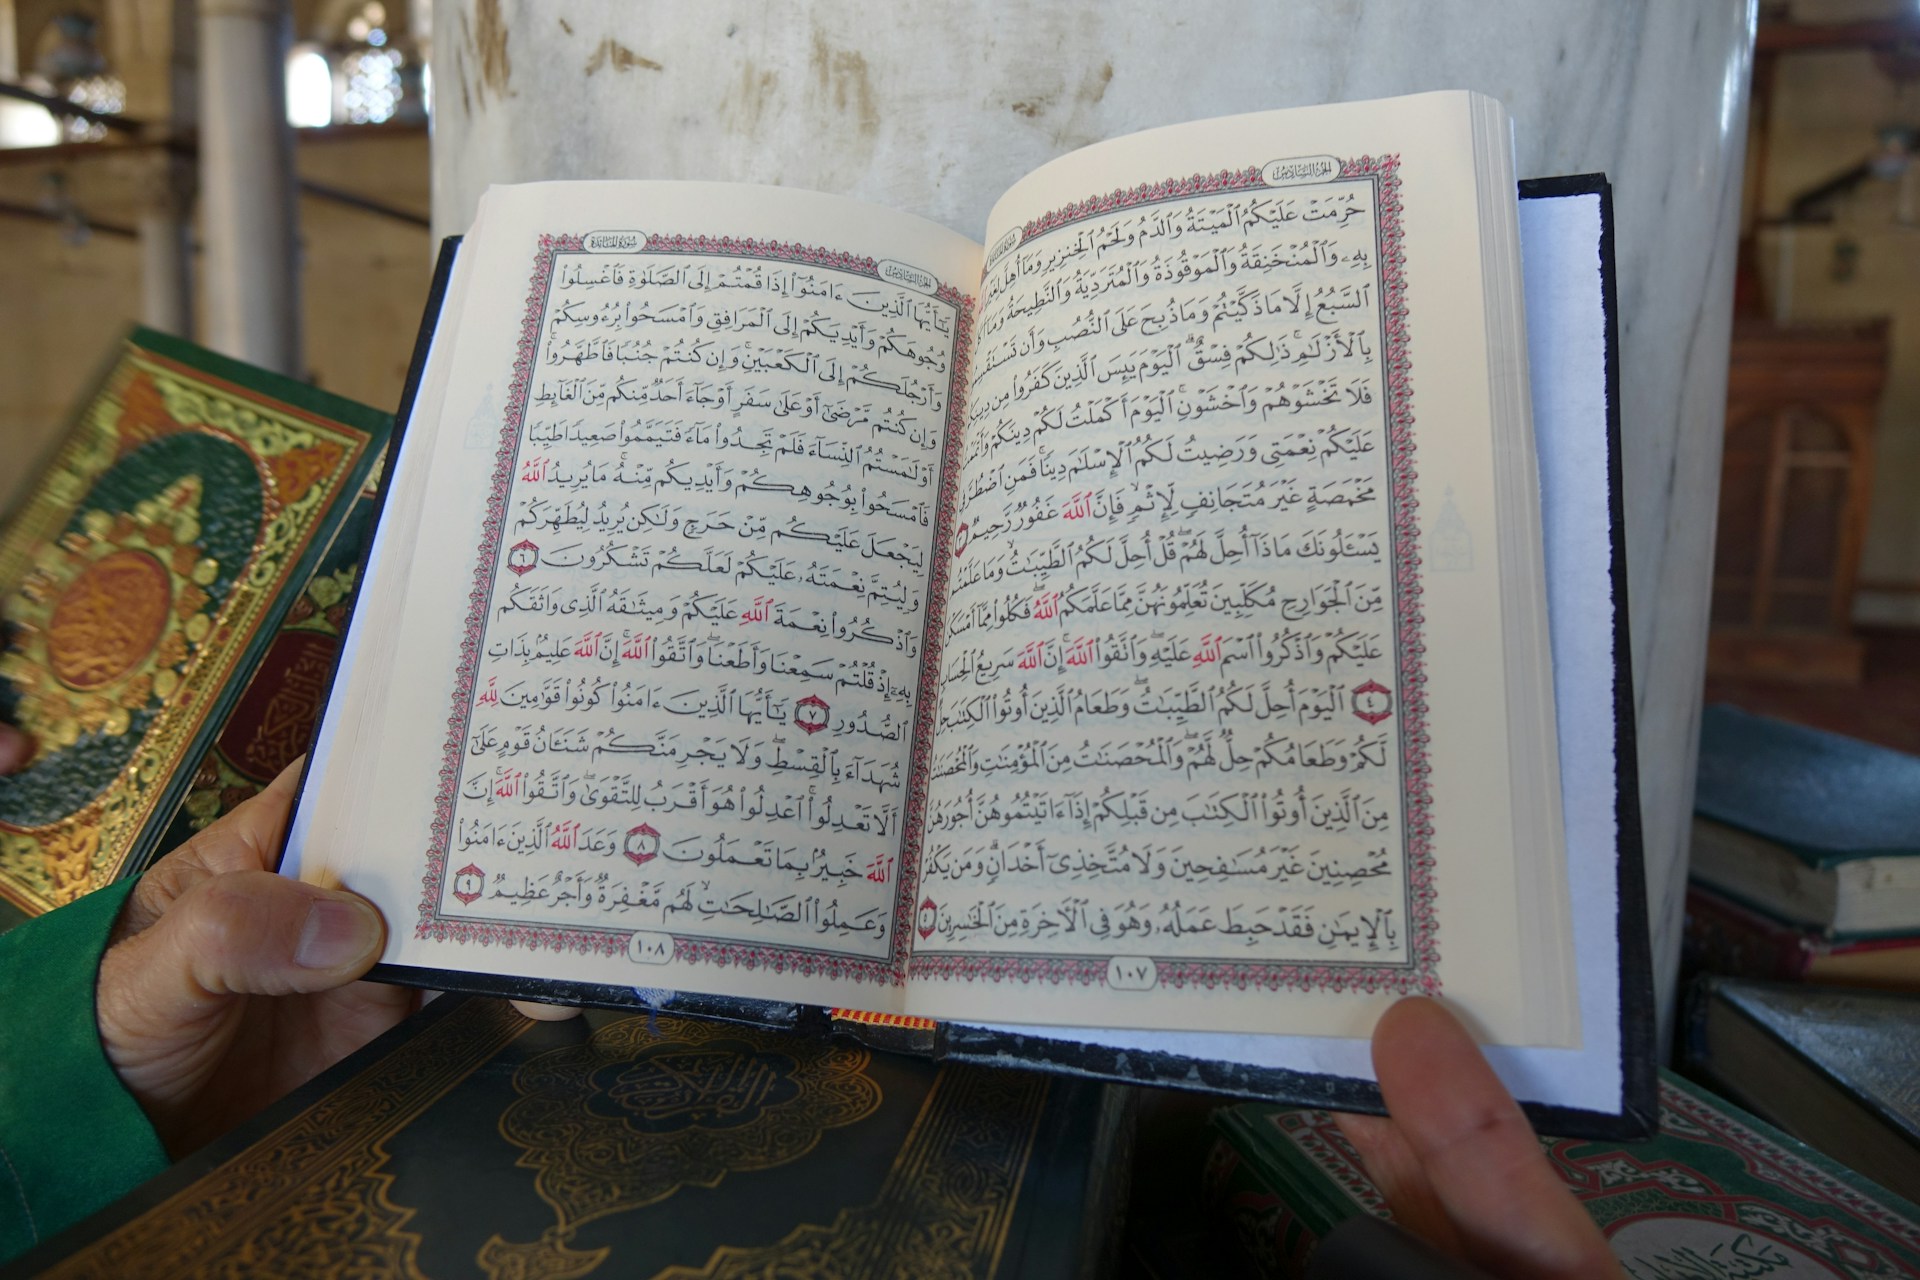 الجزء السادس
حُرِّمَتْ عَلَيْكُمُ ٱلْمَيْتَةُ وَٱلدَّمُ وَلَحْمُ ٱلْخِنزِيرِ وَمَآ أُهِلَّ لِغَيْرِ
بِهِۦ وَٱلْمُنْخَنِقَةُ وَٱلْمَوْقُوذَةُ وَٱلْمُتَرَدِّيَةُ وَٱلنَّطِيحَةُ وَمَآ
ٱلسَّبُعُ إِلَّا مَا ذَكَّيْتُمْ وَمَا ذُبِحَ عَلَى ٱلنُّصُبِ وَأَن تَسْتَقْسِمُوا۟
بِٱلْأَزْلَـٰمِ ۚ ذَٰلِكُمْ فِسْقٌ ۗ ٱلْيَوْمَ يَئِسَ ٱلَّذِينَ كَفَرُوا۟ مِن
فَلَا تَخْشَوْهُمْ وَٱخْشَوْنِ ۚ ٱلْيَوْمَ أَكْمَلْتُ لَكُمْ دِينَكُمْ
عَلَيْكُمْ نِعْمَتِى وَرَضِيتُ لَكُمُ ٱلْإِسْلَـٰمَ دِينًا ۚ فَمَنِ ٱضْطُرَّ فِى
مَخْمَصَةٍ غَيْرَ مُتَجَانِفٍ لِّإِثْمٍ ۙ فَإِنَّ ٱللَّهَ غَفُورٌ رَّحِيمٌ ٣
يَسْـَٔلُونَكَ مَاذَآ أُحِلَّ لَهُمْ ۖ قُلْ أُحِلَّ لَكُمُ ٱلطَّيِّبَـٰتُ ۙ وَمَا عَلَّمْتُم
مِّنَ ٱلْجَوَارِحِ مُكَلِّبِينَ تُعَلِّمُونَهُنَّ مِمَّا عَلَّمَكُمُ ٱللَّهُ ۖ فَكُلُوا۟ مِمَّآ أَمْسَكْنَ
عَلَيْكُمْ وَٱذْكُرُوا۟ ٱسْمَ ٱللَّهِ عَلَيْهِ ۖ وَٱتَّقُوا۟ ٱللَّهَ ۚ إِنَّ ٱللَّهَ سَرِيعُ ٱلْحِسَابِ
٤ ٱلْيَوْمَ أُحِلَّ لَكُمُ ٱلطَّيِّبَـٰتُ ۖ وَطَعَامُ ٱلَّذِينَ أُوتُوا۟ ٱلْكِتَـٰبَ حِلٌّ
لَّكُمْ وَطَعَامُكُمْ حِلٌّ لَّهُمْ ۖ وَٱلْمُحْصَنَـٰتُ مِنَ ٱلْمُؤْمِنَـٰتِ وَٱلْمُحْصَنَـٰتُ
مِنَ ٱلَّذِينَ أُوتُوا۟ ٱلْكِتَـٰبَ مِن قَبْلِكُمْ إِذَآ ءَاتَيْتُمُوهُنَّ أُجُورَهُنَّ
مُحْصِنِينَ غَيْرَ مُسَـٰفِحِينَ وَلَا مُتَّخِذِىٓ أَخْدَانٍ ۗ وَمَن يَكْفُرْ
بِٱلْإِيمَـٰنِ فَقَدْ حَبِطَ عَمَلُهُۥ وَهُوَ فِى ٱلْـَٔاخِرَةِ مِنَ ٱلْخَـٰسِرِينَ ٥
١٠٧
الجزء السادس
سورة المائدة
يَـٰٓأَيُّهَا ٱلَّذِينَ ءَامَنُوٓا۟ إِذَا قُمْتُمْ إِلَى ٱلصَّلَوٰةِ فَٱغْسِلُوا۟
وُجُوهَكُمْ وَأَيْدِيَكُمْ إِلَى ٱلْمَرَافِقِ وَٱمْسَحُوا۟ بِرُءُوسِكُمْ
وَأَرْجُلَكُمْ إِلَى ٱلْكَعْبَيْنِ ۚ وَإِن كُنتُمْ جُنُبًا فَٱطَّهَّرُوا۟ ۚ
وَإِن كُنتُم مَّرْضَىٰٓ أَوْ عَلَىٰ سَفَرٍ أَوْ جَآءَ أَحَدٌ مِّنكُم مِّنَ ٱلْغَآئِطِ
أَوْ لَـٰمَسْتُمُ ٱلنِّسَآءَ فَلَمْ تَجِدُوا۟ مَآءً فَتَيَمَّمُوا۟ صَعِيدًا طَيِّبًا
فَٱمْسَحُوا۟ بِوُجُوهِكُمْ وَأَيْدِيكُم مِّنْهُ ۚ مَا يُرِيدُ ٱللَّهُ
لِيَجْعَلَ عَلَيْكُم مِّنْ حَرَجٍ وَلَـٰكِن يُرِيدُ لِيُطَهِّرَكُمْ
وَلِيُتِمَّ نِعْمَتَهُۥ عَلَيْكُمْ لَعَلَّكُمْ تَشْكُرُونَ ٦
وَٱذْكُرُوا۟ نِعْمَةَ ٱللَّهِ عَلَيْكُمْ وَمِيثَـٰقَهُ ٱلَّذِى وَاثَقَكُم
بِهِۦٓ إِذْ قُلْتُمْ سَمِعْنَا وَأَطَعْنَا ۖ وَٱتَّقُوا۟ ٱللَّهَ ۚ إِنَّ ٱللَّهَ عَلِيمٌۢ بِذَاتِ
ٱلصُّدُورِ ٧ يَـٰٓأَيُّهَا ٱلَّذِينَ ءَامَنُوا۟ كُونُوا۟ قَوَّٰمِينَ لِلَّهِ
شُهَدَآءَ بِٱلْقِسْطِ ۖ وَلَا يَجْرِمَنَّكُمْ شَنَـَٔانُ قَوْمٍ عَلَىٰٓ
أَلَّا تَعْدِلُوا۟ ۚ ٱعْدِلُوا۟ هُوَ أَقْرَبُ لِلتَّقْوَىٰ ۖ وَٱتَّقُوا۟ ٱللَّهَ ۚ إِنَّ
ٱللَّهَ خَبِيرٌۢ بِمَا تَعْمَلُونَ ٨ وَعَدَ ٱللَّهُ ٱلَّذِينَ ءَامَنُوا۟
وَعَمِلُوا۟ ٱلصَّـٰلِحَـٰتِ ۙ لَهُم مَّغْفِرَةٌ وَأَجْرٌ عَظِيمٌ ٩
١٠٨